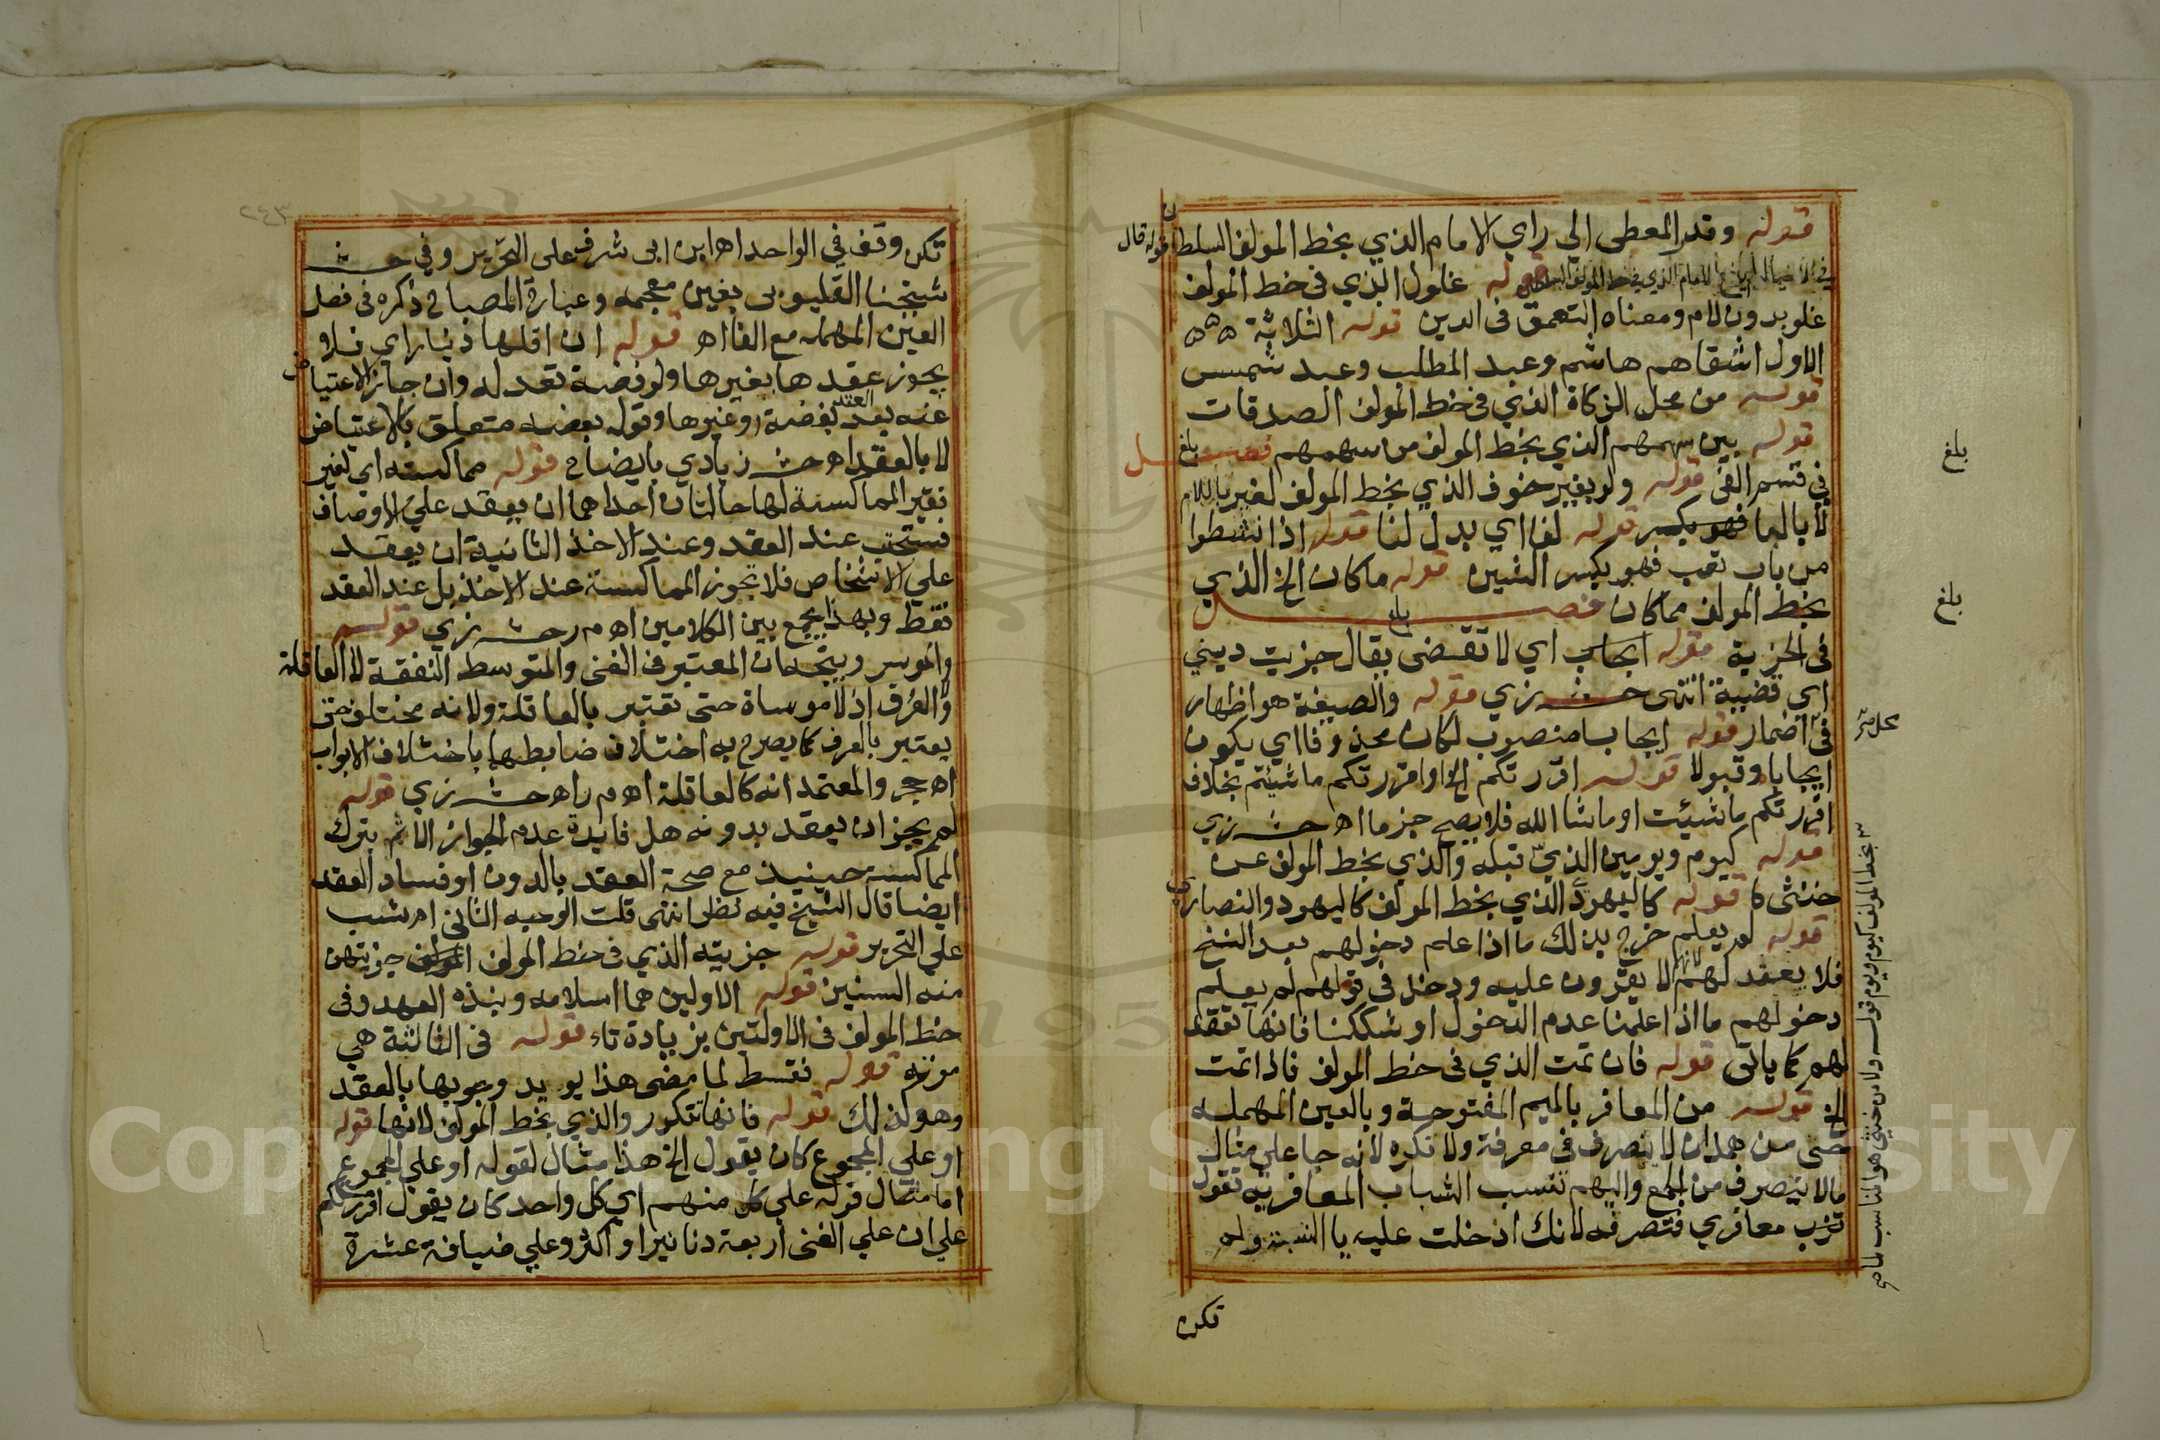 قوله وقدر المعطى الي راي الامام الذي بخط المولف السلطان قوله قال
قوله غلول الذي في خط المولف
غلو بدون لام ومعناه التعمق في الدين قوله الثلاثة ه ه ه
الاول اشقاهم هاشم وعبد المطلب وعبد شمس
قوله من محل الزكاة الذي في خط المولف الصدقات
قوله بين سهمهم الذي بخط المولف من اسهمهم فصل
في قسم الفى قوله ولو بغير خوف الذي بخط المولف لغير باللام
لا بالبا فهو بكسر قوله لفا اي بدل لنا قوله اذا نشطوا
من باب تعب فهو بكسر الشين قوله ما كان الخ الذي
بخط المولف مما كان فصل بلغ
في الجزية قوله ايجاب اي لا تقضى يقال جزيت ديني
اي قضيبة انتهى حش زي قوله والصيغة هو اظهار
في اضمار قوله ايجابا منصوب لكان محذوفا اي يكون
ايجابا وقبولا قوله اقررتكم الخ او اقررتكم ما شيئتم بخلاف
اقررتكم ما شيئت او ما شا الله فلا يصح جزما اه حش زي
قوله كيوم ويومين الذي قبله والذي بخط المولف عن
خنثى كا قوله كاليهود الذي بخط المولف كاليهود والنصارى
قوله لم يعلم خرج بذلك ما اذا علم دخولهم بعد النسخ
فلا يعقد لهم لانهم لا يقرون عليه ودخل في قولهم لم يعلم
دخولهم ما اذا علمنا عدم الدخول او شككنا فانها تعقد
لهم كما ياتى قوله فان تمت الذي في خط المولف فاذا تمت
الخ قوله من المعافر بالميم المفتوحة وبالعين المهملة
حتى من همدان لا ينصرف في معرفة ولا نكره لانه جا على مثال
مالا ينصرف من الجمع واليهم تنسب الثياب المعافرية تقول
ثوب معافري فتصرفه لانك ادخلت عليه يا النسبة ولم
تكن
بلغ
بلغ
٣ بخط المولف كيوم ويوم قوله ولا من خنثى هو المناسب لما مر
٢٤٣
تكن وقف في الواحد اه ابن ابى شرف على التحرير وفي حش
شيخنا القليوبى بغين معجمه وعبارة المصباح ذكره في فصل
العين المهمله مع الفا اه قوله ان اقلها دينار اي فلا
يجوز عقدها بغيرها ولو فضة تعدله وان جاز الاعتياض
عنه بعد العقد بفضة اوغيرها وقوله بعضه متعلق بالاعتياض
لا بالعقد اه حش زيادي بايضاح قوله مماكسته اي لغير
فقير المماكسة لها حالتان احداهما ان يعقد علي الاوصاف
فتستحب عند العقد وعند الاخذ الثانية ان يعقد
علي الاشخاص فلا تجوز المماكسة عند الاخذ بل عند العقد
فقط وبهذا يجمع بين الكلامين اه م ر حش زي قوله
والموسر ويتجه ان المعتبر في الغنى والمتوسط النفقة لا العاقلة
والعرف اذ لا مواساة حتى تعتبر بالعاقلة ولانه مختلف حتى
يعتبر بالعرف كما يصرح به اختلاف ضابطها باختلاف الابواب
اه حجر والمعتمد انه كالعاقلة اه م ر اه حش زي قوله
لم يجز ان يعقد بدونه هل فايدة عدم الجواز الاثم بترك
المماكسة حينيذ مع صحة العقد بالدون او فساد العقد
ايضا قال الشيخ فيه نظر انتهى قلت الوجيه الثاني اه شب
علي التحرير قوله جزيته الذي في خط المولف جزيتهن
منه السنين قوله الاولين هما اسلامه ونبذه العهد وفى
خط المولف في الاولتين بزيادة تاء قوله في الثالثة هي
موته قوله نقسط لما مضى هذا يويد وجوبها بالعقد
وهو كذلك قوله فانها تكرر والذي بخط المولف لانها قوله
او علي المجموع كان يقول الخ هذا مثال لقوله او على المجموع
اما مثال قوله على كل منهم اي كل واحد كان يقول اقررتكم
علي ان علي الغنى اربعة دنانير او اكثر وعلي ضيافة عشرة